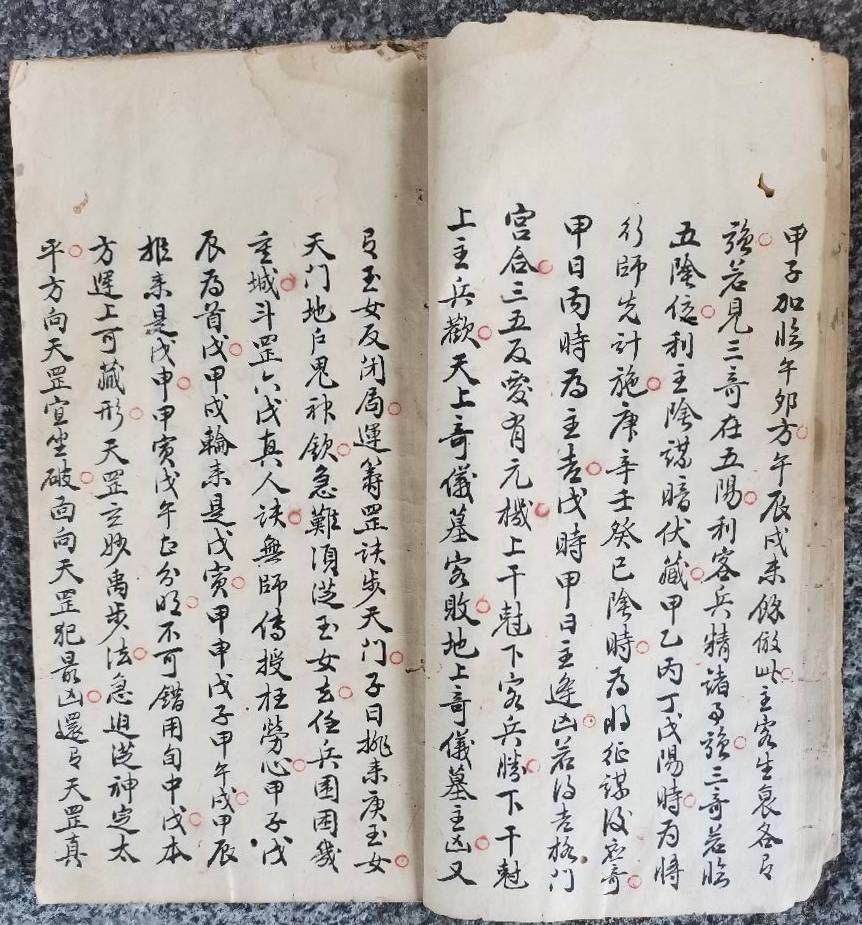 甲子加臨午卯方午辰戌未餘倣此主客生衰各有
強若見三奇在五陽利客兵精諸事強三奇若臨
五陰位利主陰謀暗伏藏甲乙丙丁戊陽時為將
行師先計施庚辛壬癸已陰時為將征謀後應奇
甲日丙時為主吉戊時甲日主逢凶若得吉格門
宮合三五反變有元機上干尅下客兵勝下干尅
上主兵歡天上奇儀墓客敗地上奇儀墓主凶又
有玉女反閉局運籌罡訣步天門子日挑未庚玉女
天門地戶鬼神欽急難須從玉女去任兵圍困幾
重城斗罡六戊真人訣無師傳授枉勞心甲子戊
辰為首戊甲戌輪來是戊寅甲申戊子甲午戊甲辰
推來是戊申甲寅戊午正分明不可錯用旬中戊本
方運上可藏形天罡立妙禹步法急迫從神定太
平方向天罡宜坐破面向天罡犯最凶還有天罡真